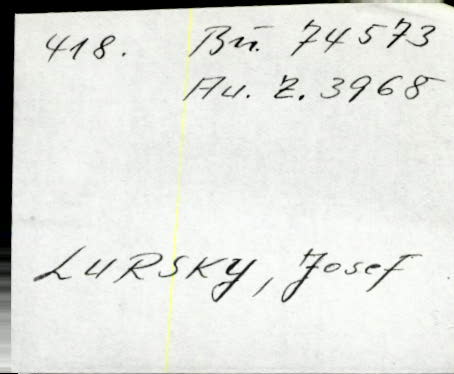 418. Bu. 74573
Au. Z. 3968
LURSKY, Josef